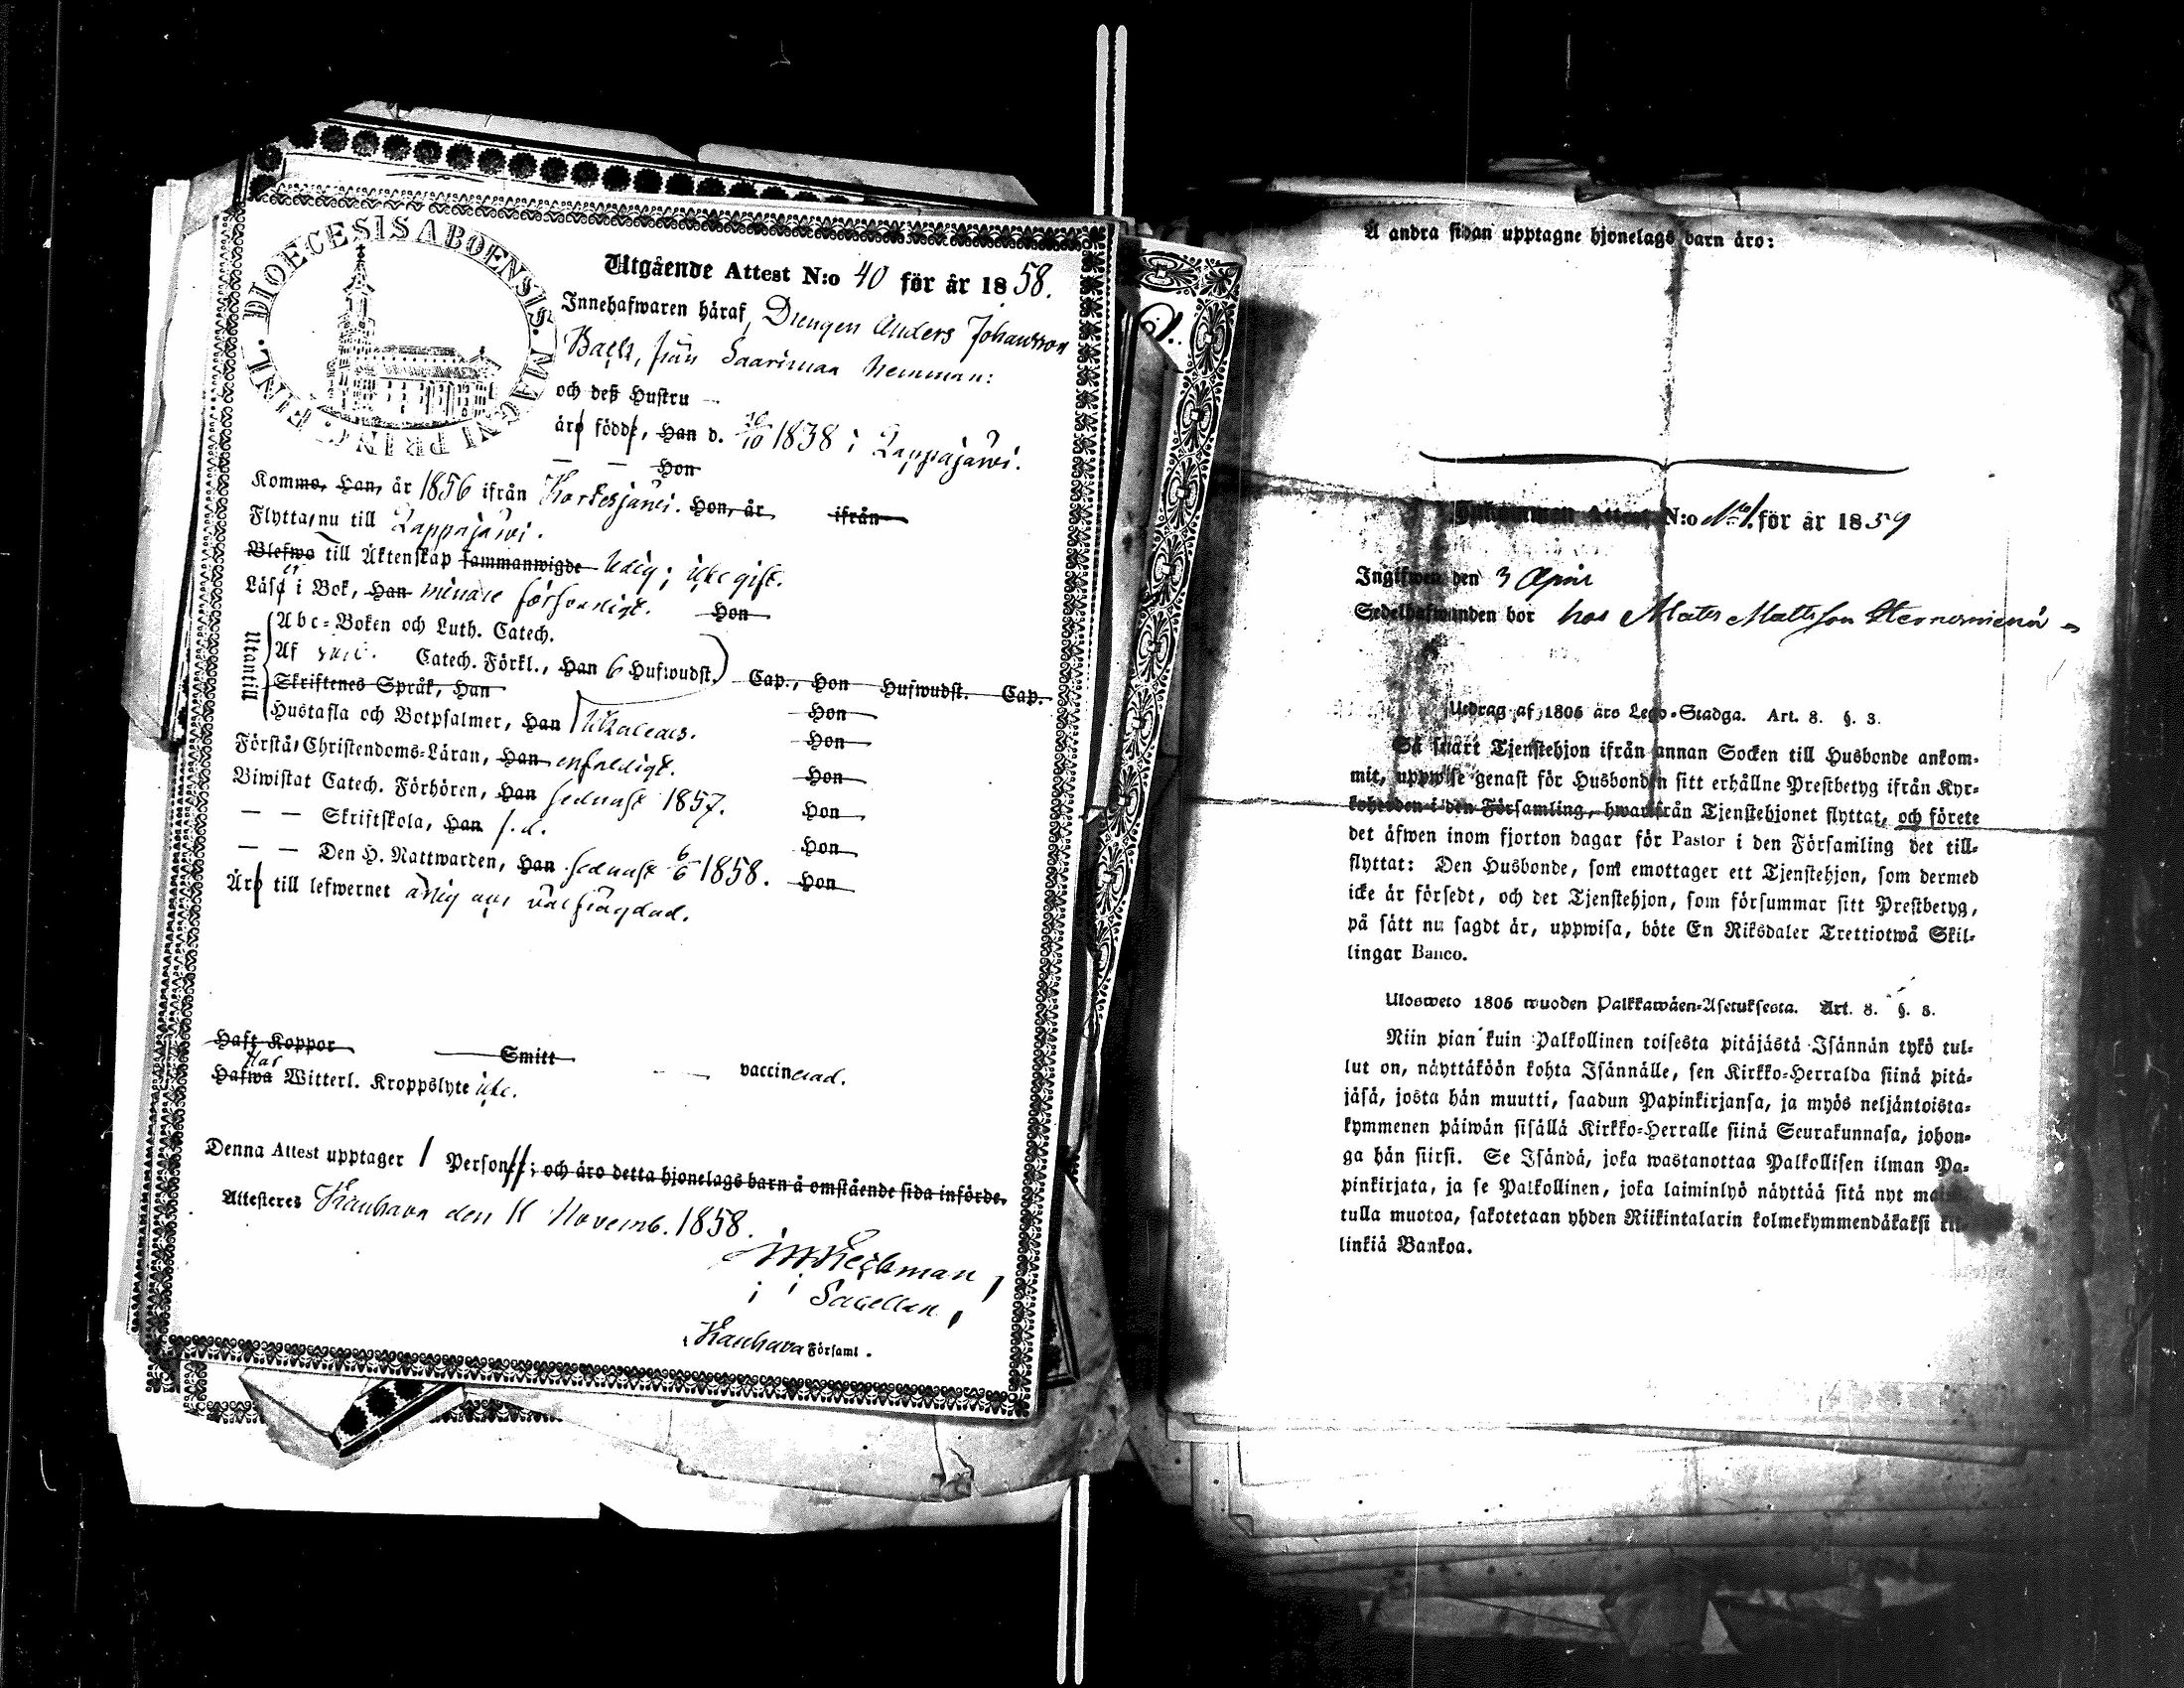 FINL. DIOECESIS ABOENSIS. MAGNI PRINC.
Utgående Attest N:o 40 för år 1858.
Innehafwaren häraf, Drengen Anders Johansson
Back, från Saarimaa hemman:
och deß Hustru —
äro född, Han d. /10 1838 i Lappajärvi.
— — Hon
Kommo, Han, år 1856 ifrån Kortesjärvi. Hon, år ifrån
Flytta, nu till Lappajärvi.
Blefwo till Äktenskap sammanwigde ledig; icke gift.
Läser i Bok, Han mindre försvarligt. Hon
Utantill
Abc-Boken och Luth. Catech.
Af Catech. Förkl., Han 6 Hufwudst. Cap., Hon Hufwudst. Cap.
Skriftenes Språk, Han Hon
Hustafla och Botpsalmer, Han Hon
Förstå, Christendoms-Läran, Han enfaldigt. Hon
Biwistat Catech. Förhören, Han sednast 1857. Hon
— — Skriftskola, Han s. å. Hon
— — Den H. Nattwarden, Han sednast 6/6 1858. Hon
Äro till lefwernet ärlig och välfrägdad.
Haft Koppor Smitt vaccinerad.
Har
Hafwa Witterl. Kroppslyte icke.
Denna Attest upptager 1 Person; och äro detta hjonelags barn å omstående sida införde.
Attesteres Kauhava den 11 Novemb. 1858.
Sacellan,
Kauhava Församl.
Å andra sidan upptagne hjonelags barn äro:
Attest N:o för år 1859
Ingifwen den 3 April
Sedelhafwanden bor hos Mats Mattsson
Utdrag af 1805 års Lego-Stadga. Art. 8. §. 3.
Så snart Tjenstehjon ifrån annan Socken till Husbonde ankom-
mit, uppwise genast för Husbonden sitt erhållne Prestbetyg ifrån Kyr-
koherden i den Församling, hwarifrån Tjenstehjonet flyttat, och förete
det äfwen inom fjorton dagar för Pastor i den Församling det till-
flyttat: Den Husbonde, som emottager ett Tjenstehjon, som dermed
icke är försedt, och det Tjenstehjon, som försummar sitt Prestbetyg,
på sätt nu sagdt är, uppwisa, böte En Riksdaler Trettiotwå Skil-
lingar Banco.
Ulosweto 1805 wuoden Palkkawäen-Asetuksesta. Art. 8. §. 3.
Niin pian kuin Palkollinen toisesta pitäjästä Isännän tykö tul-
lut on, näyttäköön kohta Isännälle, sen Kirkko-Herralda siinä pitä-
jäsä, josta hän muutti, saadun Papinkirjansa, ja myös neljäntoista-
kymmenen päiwän sisällä Kirkko-Herralle siinä Seurakunnasa, johon-
ga hän siirsi. Se Isändä, joka wastanottaa Palkollisen ilman Pa-
pinkirjata, ja se Palkollinen, joka laiminlyö näyttää sitä nyt
tulla muotoa, sakotetaan yhden Riikintalarin kolmekymmendäkaksi kil-
linkiä Bankoa.